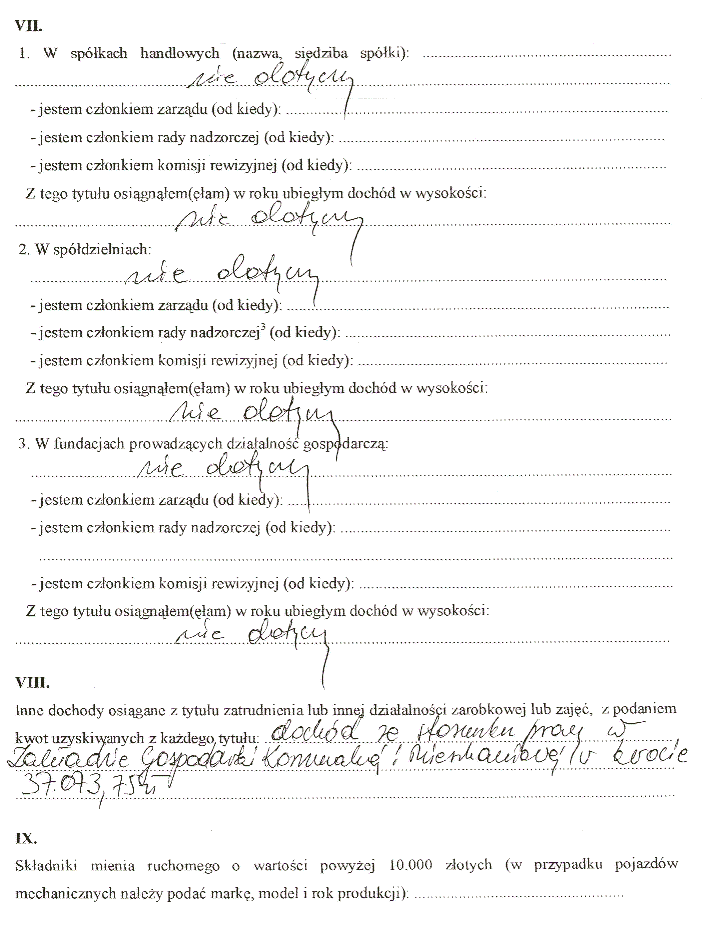 VII.
1. W spółkach handlowych (nazwa, siędziba spółki): ................
nie dotyczy
- jestem członkiem zarządu (od kiedy): ................
- jestem członkiem rady nadzorczej (od kiedy): ................
- jestem członkiem komisji rewizyjnej (od kiedy): ................
Z tego tytułu osiągnąłem(ęłam) w roku ubiegłym dochód w wysokości:
nie dotyczy
2. W spółdzielniach:
nie dotyczy
- jestem członkiem zarządu (od kiedy): ................
- jestem członkiem rady nadzorczej³ (od kiedy): ................
- jestem członkiem komisji rewizyjnej (od kiedy): ................
Z tego tytułu osiągnąłem(ęłam) w roku ubiegłym dochód w wysokości:
nie dotyczy
3. W fundacjach prowadzących działalność gospodarczą:
nie dotyczy
- jestem członkiem zarządu (od kiedy): ................
- jestem członkiem rady nadzorczej (od kiedy): ................
- jestem członkiem komisji rewizyjnej (od kiedy): ................
Z tego tytułu osiągnąłem(ęłam) w roku ubiegłym dochód w wysokości:
nie dotyczy
VIII.
Inne dochody osiągane z tytułu zatrudnienia lub innej działalności zarobkowej lub zajęć, z podaniem
kwot uzyskiwanych z każdego tytułu: dochód ze stosunku pracy w
Zakładzie Gospodarki Komunalnej i Mieszkaniowej w kwocie
37.073,75 zł
IX.
Składniki mienia ruchomego o wartości powyżej 10.000 złotych (w przypadku pojazdów
mechanicznych należy podać markę, model i rok produkcji): ................